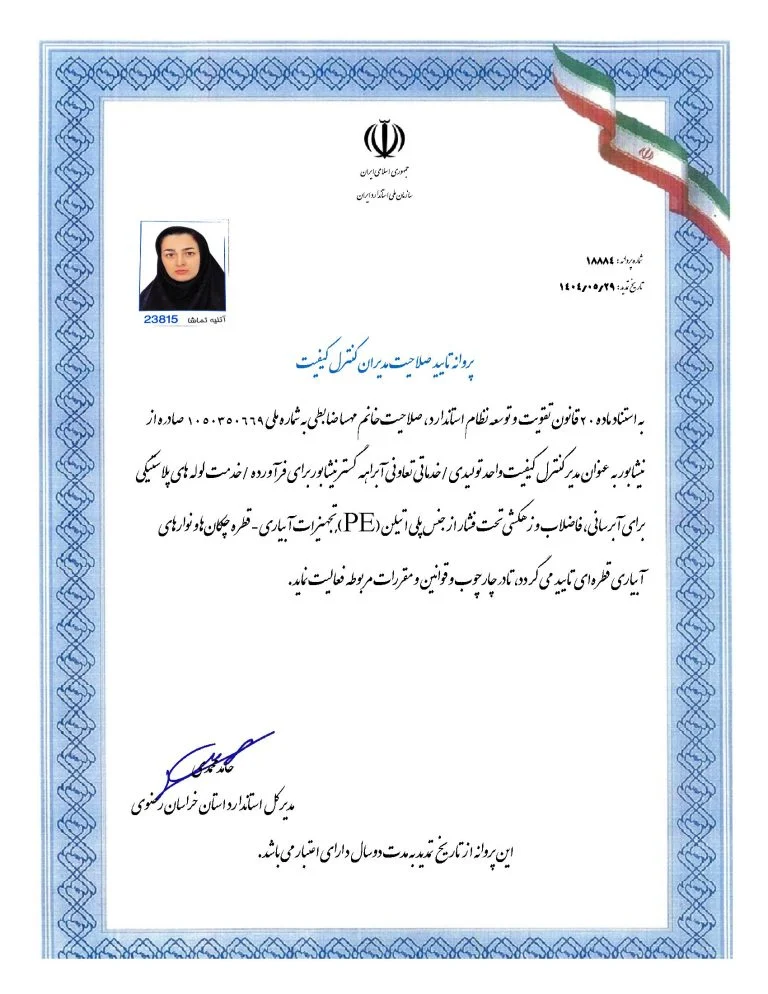 جمهوری اسلامی ایران
سازمان ملی استاندارد ایران
شماره پروانه: ۱۸۸۸۴
تاریخ تمدید: ۱۴۰۴/۰۵/۲۹
آتلیه تماشا 23815
پروانه تایید صلاحیت مدیران کنترل کیفیت
به استناد ماده ۲۰ قانون تقویت و توسعه نظام استاندارد، صلاحیت خانم مهسا ضابطی به شماره ملی ۱۰۵۰۳۵۰۶۶۹ صادره از
نیشابور به عنوان مدیر کنترل کیفیت واحد تولیدی / خدماتی تعاونی آبراهه گستر نیشابور برای فرآورده / خدمت لوله های پلاستیکی
برای آبرسانی، فاضلاب و زهکشی تحت فشار از جنس پلی اتیلن (PE)، تجهیزات آبیاری - قطره چکان ها و نوارهای
آبیاری قطره ای تایید می گردد، تا در چارچوب و قوانین و مقررات مربوطه فعالیت نماید.
مدیر کل استاندارد استان خراسان رضوی
این پروانه از تاریخ تمدید به مدت دو سال دارای اعتبار می باشد.